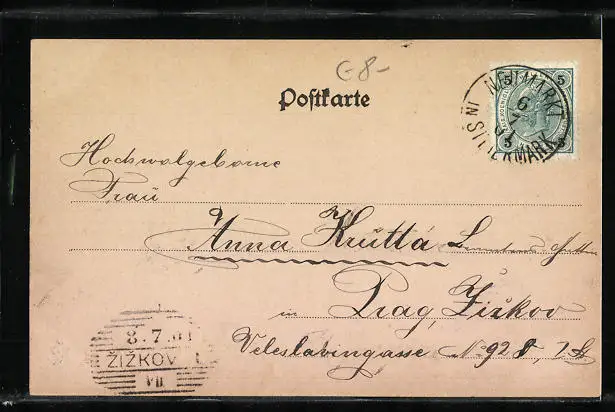 G8-
Postkarte
5 5
5 5
NEUMARKT
6
7
IN STEIERMARK
Hochwolgeborne
Frau
Anna Krutta
in Prag, Žižkov
Veleslavingasse No 928, I. St
8.7.01
ŽIŽKOV 1
VII